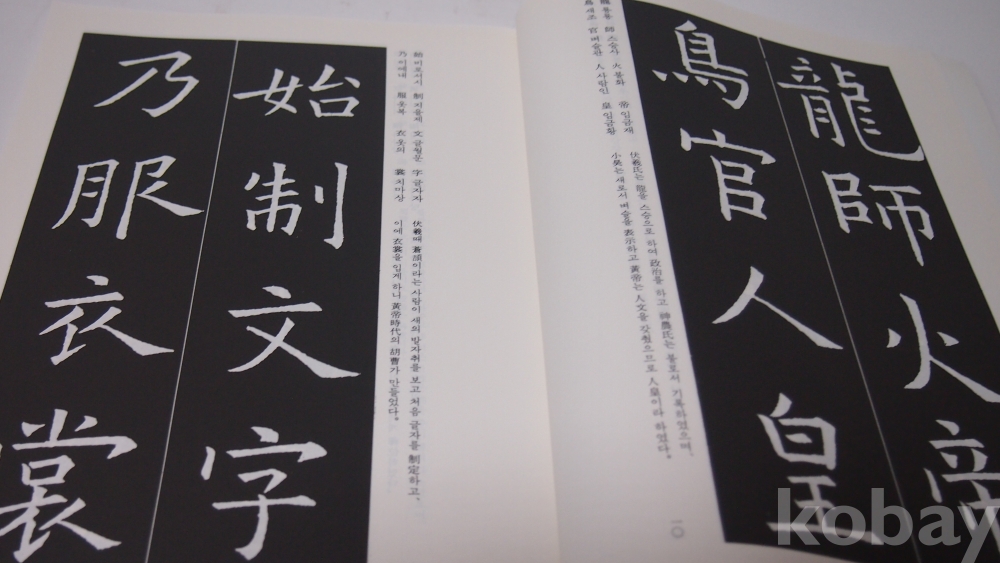 龍師火帝
鳥官人皇
龍용룡 師스승사 火불화 帝임금재
鳥새조 官벼슬관 人사람인 皇임금황
伏羲氏는 龍을 스승으로 하여 政治를 하고 神農氏는 불로서 기록하였으며,
小昊는 새로서 벼슬을 表示하고 黃帝는 人文을 갓췄으므로 人皇이라 하였다。
一〇
始制文字
乃服衣裳
始비로서시 制지을제 文글월문 字글자자
乃이에내 服옷복 衣옷의 裳치마상
伏羲때 蒼頡이라는 사람이 새의 발자취를 보고 처음 글자를 制定하고、
이에 衣裳을 입게 하니 黃帝時代의 胡曹가 만들었다。
kobay